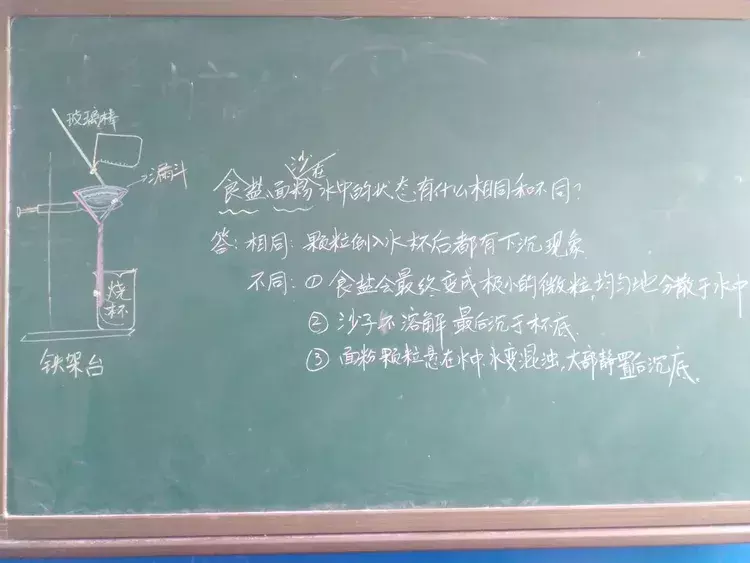 玻璃棒
漏斗
烧
杯
铁架台
沙在
食盐、面粉水中的状态有什么相同和不同?
答:相同:颗粒倒入水杯后都有下沉现象
不同:①食盐会最终变成极小的微粒,均匀地分散于水中
②沙子不溶解最后沉于杯底.
③面粉颗粒悬在水中,水变混浊,大部静置后沉底.